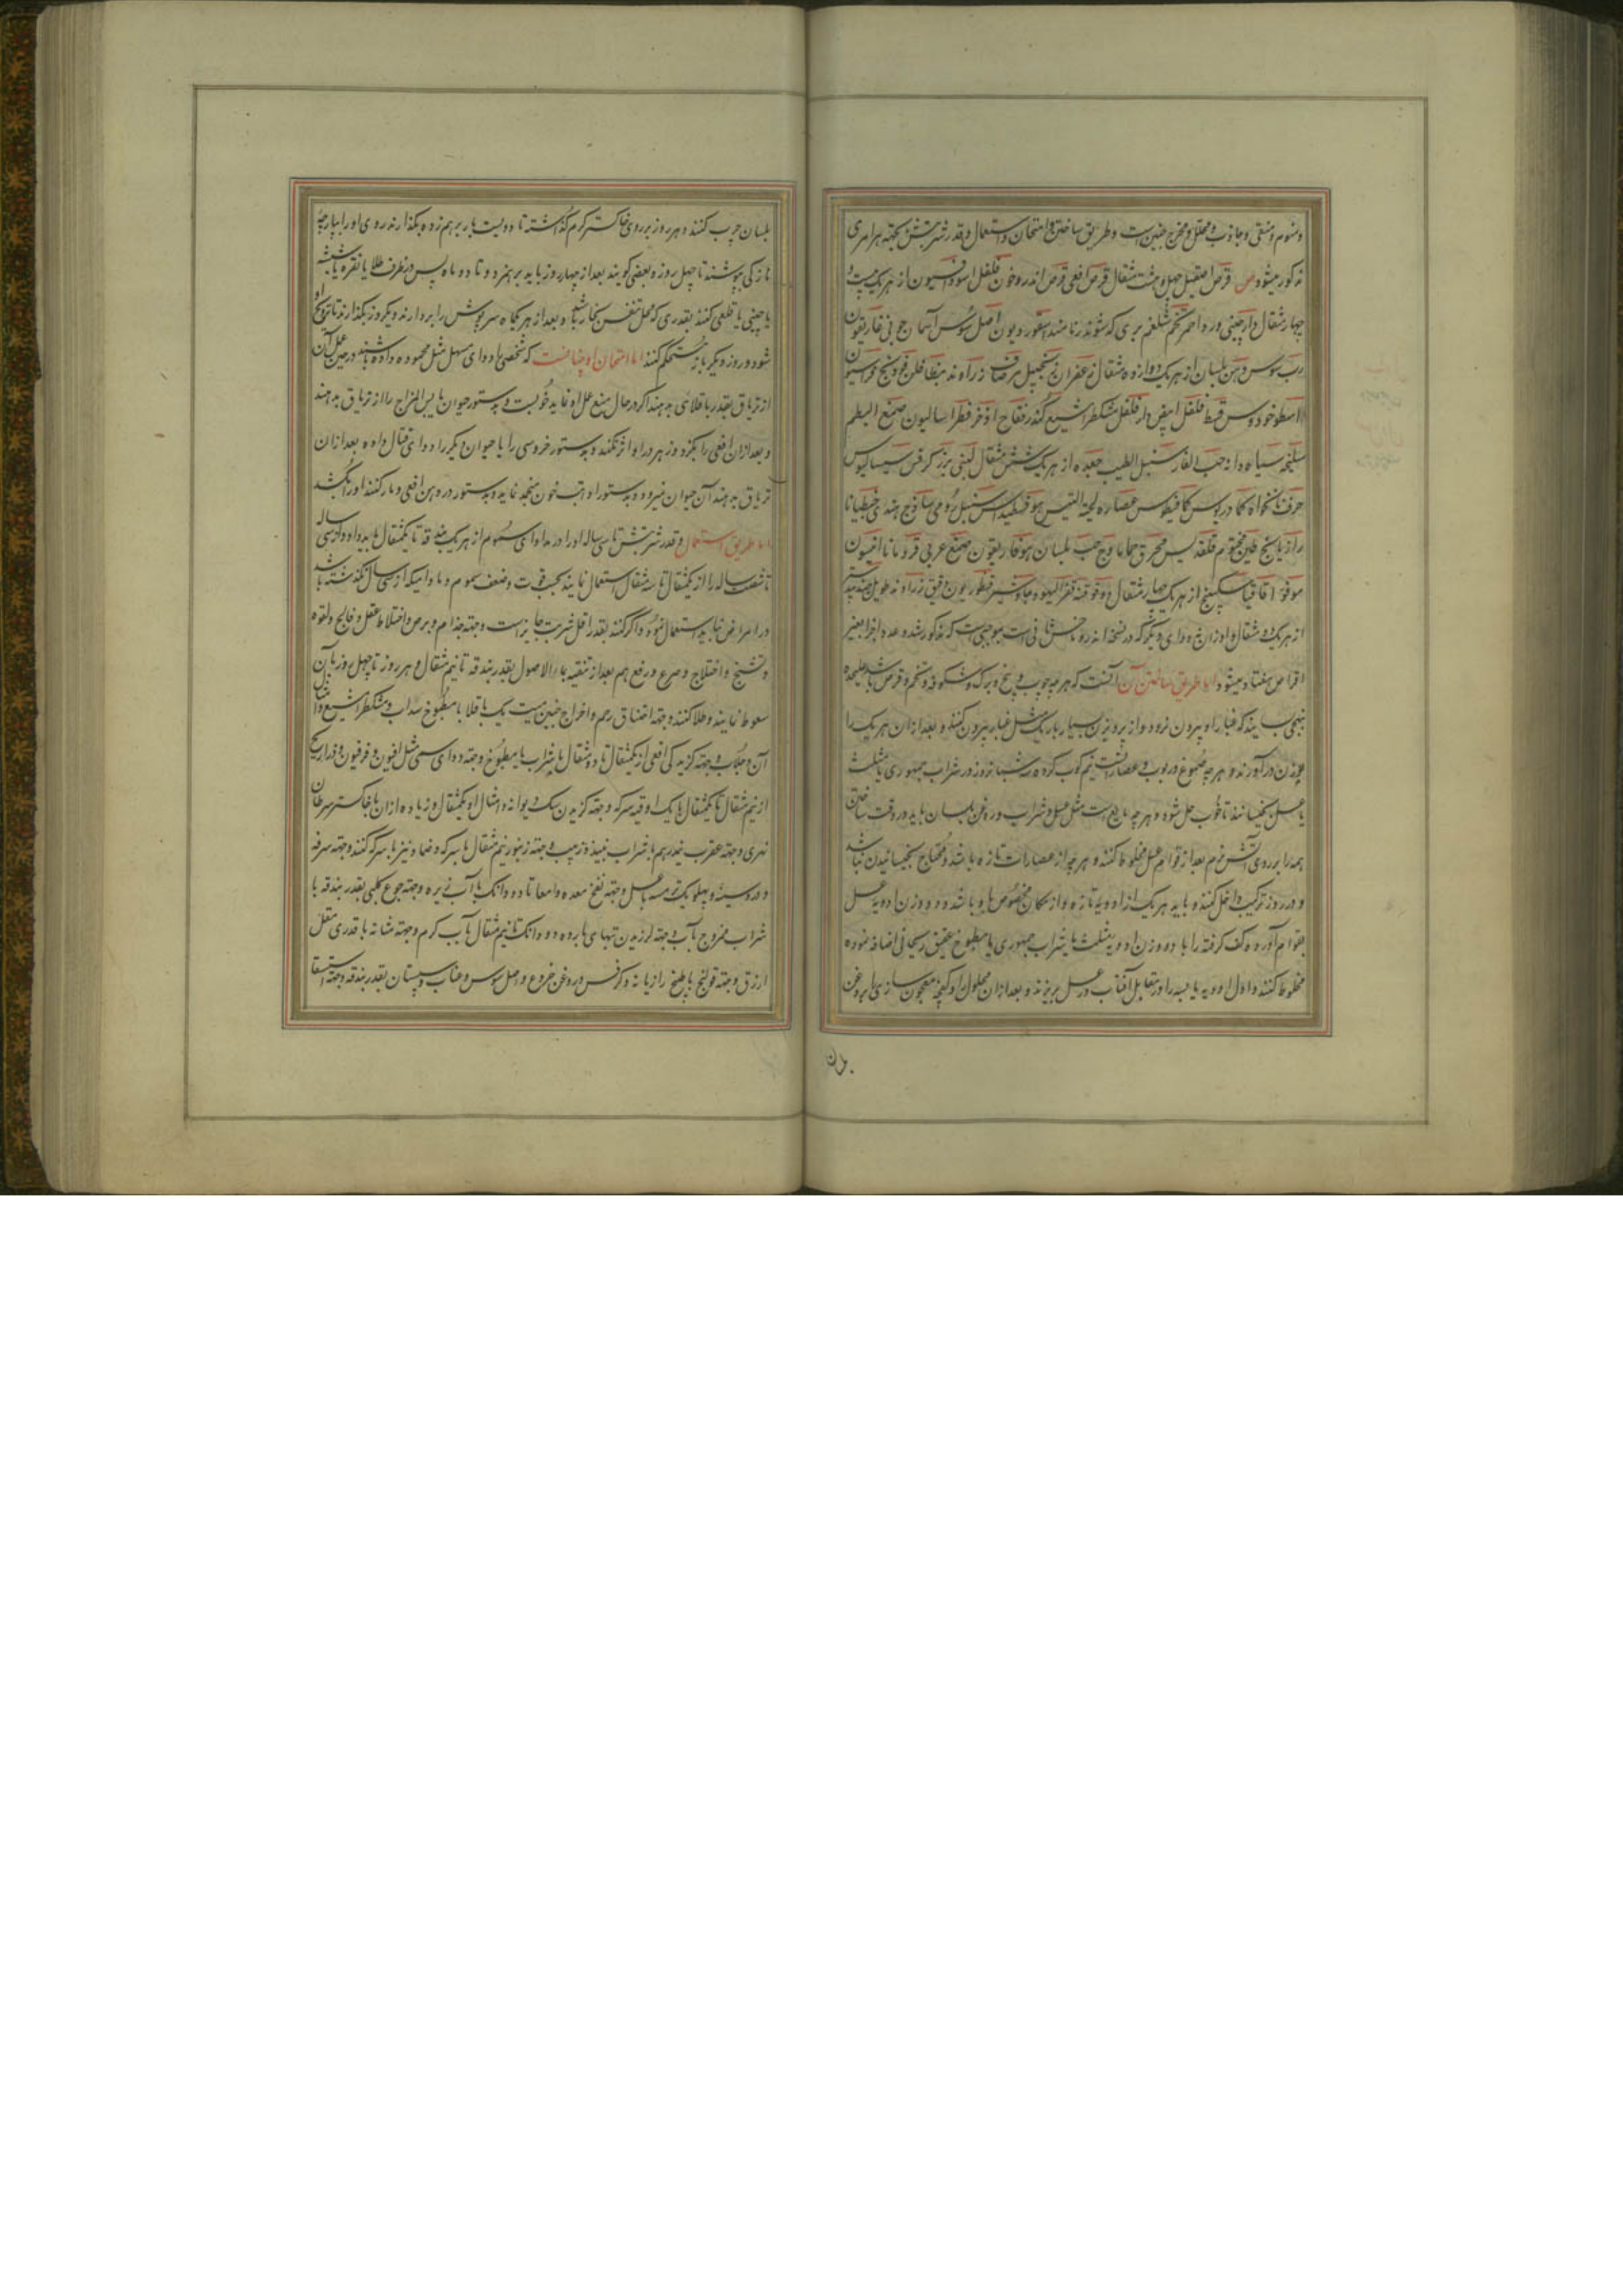 ومنوم ومنقی و جاذب و محلل و مخرج جنین است و طریق ساختن و امتحان و استعمال و قدر شربتش بجهة هر امری
مذکور میشود ص قرص اسقیل چهل و هشت مثقال قرص افعی قرص اندروخون فلفل اسود افیون از هر یک بیست و
چهار مثقال دارچینی ورد احمر تخم شلغم بری که شوندرنا مند اسقوردیون اصل سوس آسمان جونی غاریقون
رب سوس دهن بلسان از هر یک دوازده مثقال زعفران زنجبیل مر صاف زراوند فودنج فراسیون
اسطوخودوس قسط فلفل ابیض دار فلفل مشکطرامشیع کندر فقاح اذخر فطراسالیون صمغ البطم
سلیخه سیاه دانه حب الغار سنبل الطیب جعده از هر یک شش مثقال لبنی بزر کرفس سیسالیوس
حرف نانخواه کمادریوس کمافیطوس عصاره لحیة التیس هوفسطیداس سنبل رومی ساذج هندی جنطیانا
رازیانج طین مختوم قلقدیس محرق حماما وج حب بلسان هوفاریقون صمغ عربی قردمانا انیسون
موفو اقاقیا سکبینج از هر یک چهار مثقال دوقو قنه قفر الیهود جاوشیر قنطوریون دقیق زراوند طویل جندبیدستر
از هر یک دو مثقال و اوزان دوای دیگر که در نسخه اندروماخس ثانی است بموجبی است که مذکور شده عدد اجزا بغیر
اقراص هفتاد میشود اما طریق ساختن آن آنست که هر چه چوب و بیخ و برک و شکوفه و تخم و قرص باشد علیحده
بنهجی بسایند که غبار او بیرون نرود و از پرویزن بسیار باریک مثل غبار بیرون کنند و بعد از آن هر یک را
بوزن درآورند و هر چه صموغ و ربوب و عصارات نیم کوب کرده شبانروز در شراب جمهوری یا مثلث
یا عسل بخیسانند تا خوب حل شود و هر چه مایع است مثل عسل و شراب و روغن بلسان باید در وقت ساختن
همه را بر روی آتش نرم بعد از قوام عسل مخلوط کنند و هر چه از عصارات تازه باشد و محتاج بخیسانیدن نباشد
و در روز ترکیب داخل کنند و باید هر یک از ادویه تازه و از مکان مخصوص ما و باشد و دو وزن ادویه عسل
بقوام آورده کف گرفته را با دو وزن ادویه مثلث یا شراب جمهوری یا مطبوخ عتیق ریحانی اضافه نموده
مخلوط کنند و اول ادویه یابسه را در مقابل آفتاب در عسل بریزند و بعد از آن محلول را و کفچه معجون سازی را بروغن
بلسان
بلسان چرب کنند و هر روز بر روی خاکستر گرم گذاشته تا دویست بار بر هم زده بگذارند روی او را بپارچه
نازکی بپوشند تا چهل روز و بعضی کویند بعد از چهار روز باید بر هم زد و تا دو ماه پس در ظرف طلا یا نقره یا شیشه
یا چینی یا قلعی کنند بقدری که محل تنفس بخار باشد و بعد از هر یکماه سرپوش را بردارند و یکروز بگذارند تا ترویح او
شود و روز دیگر باز مستحکم کنند اما امتحان او چنانست که شخصی را دوای مسهل مثل محموده داده باشند در عین عمل آن
از تریاق بقدر باقلائی بدهند اگر در حال منع عمل او نماید خوبست و بدستور حیوان یابس المزاج را از تریاق بدهند
و بعد از آن افعی را بگزد و زهر در او اثر نکند و بدستور خروسی را یا حیوان دیگر را دوای قتال داده بعد از آن
تریاق بدهند آن حیوان نمیرد و بدستور او آب خون منجمد نماید و بدستور در دهن افعی و مار کنند او را بکشد
اما طریق استعمال و قدر شربتش تا سی ساله او را در مداوای سموم از هر یک بندقه تا یکمثقال باید داد و از سی ساله
تا شصت ساله را از یکمثقال تا سه مثقال استعمال نمایند بحسب قوت و ضعف سموم و مادامیکه از سی سال نگذشته باشد
در امراض نباید استعمال نمود و اگر کنند بقدر اقل شربت جایز است و جهة جذام و برص و اختلاط عقل و فالج و لقوه
و تشنج و اختلاج و صرع و رفع هم بعد از تنقیه بماء الاصول بقدر بندقه تا نیم مثقال و هر روز تا چهل روز بدان
سعوط نمایند و طلا کنند و جهة اختناق رحم و اخراج جنین میت یک باقلا با مطبوخ سداب و مشکطرامشیع و امثال
آن و جلاب و جهة گزیدگی افعی از یکمثقال تا دو مثقال با شراب یا مطبوخ و جهة دوای سمی مثل افیون و فرفیون و ذراریح
از نیم مثقال تا یکمثقال با یک اوقیه سرکه و جهة گزیدن سگ دیوانه و امثال او یکمثقال و زیاده از آن با خاکستر سرطان
نهری و جهة عقرب نیم درهم با شراب نبیذ و زبیب و جهة زنبور نیم مثقال با سرکه و ضماد نیز با سرکه کنند و جهة سرفه
و درد سینه و پهلو یک ترمسه با عسل و جهة نفخ معده و امعا تا دو دانک با آب زیره و جهة جوع کلبی بقدر بندقه با
شراب ممزوج بآب و جهة لرزیدن تبهای بارده دو دانک تا نیم مثقال بآب گرم و جهة مثانه با قدری مقل
ازرق و جهة قولنج با طبیخ رازیانه و کرفس و روغن خروع و اصل سوس و عناب و سپستان بقدر بندقه و جهة استسقا